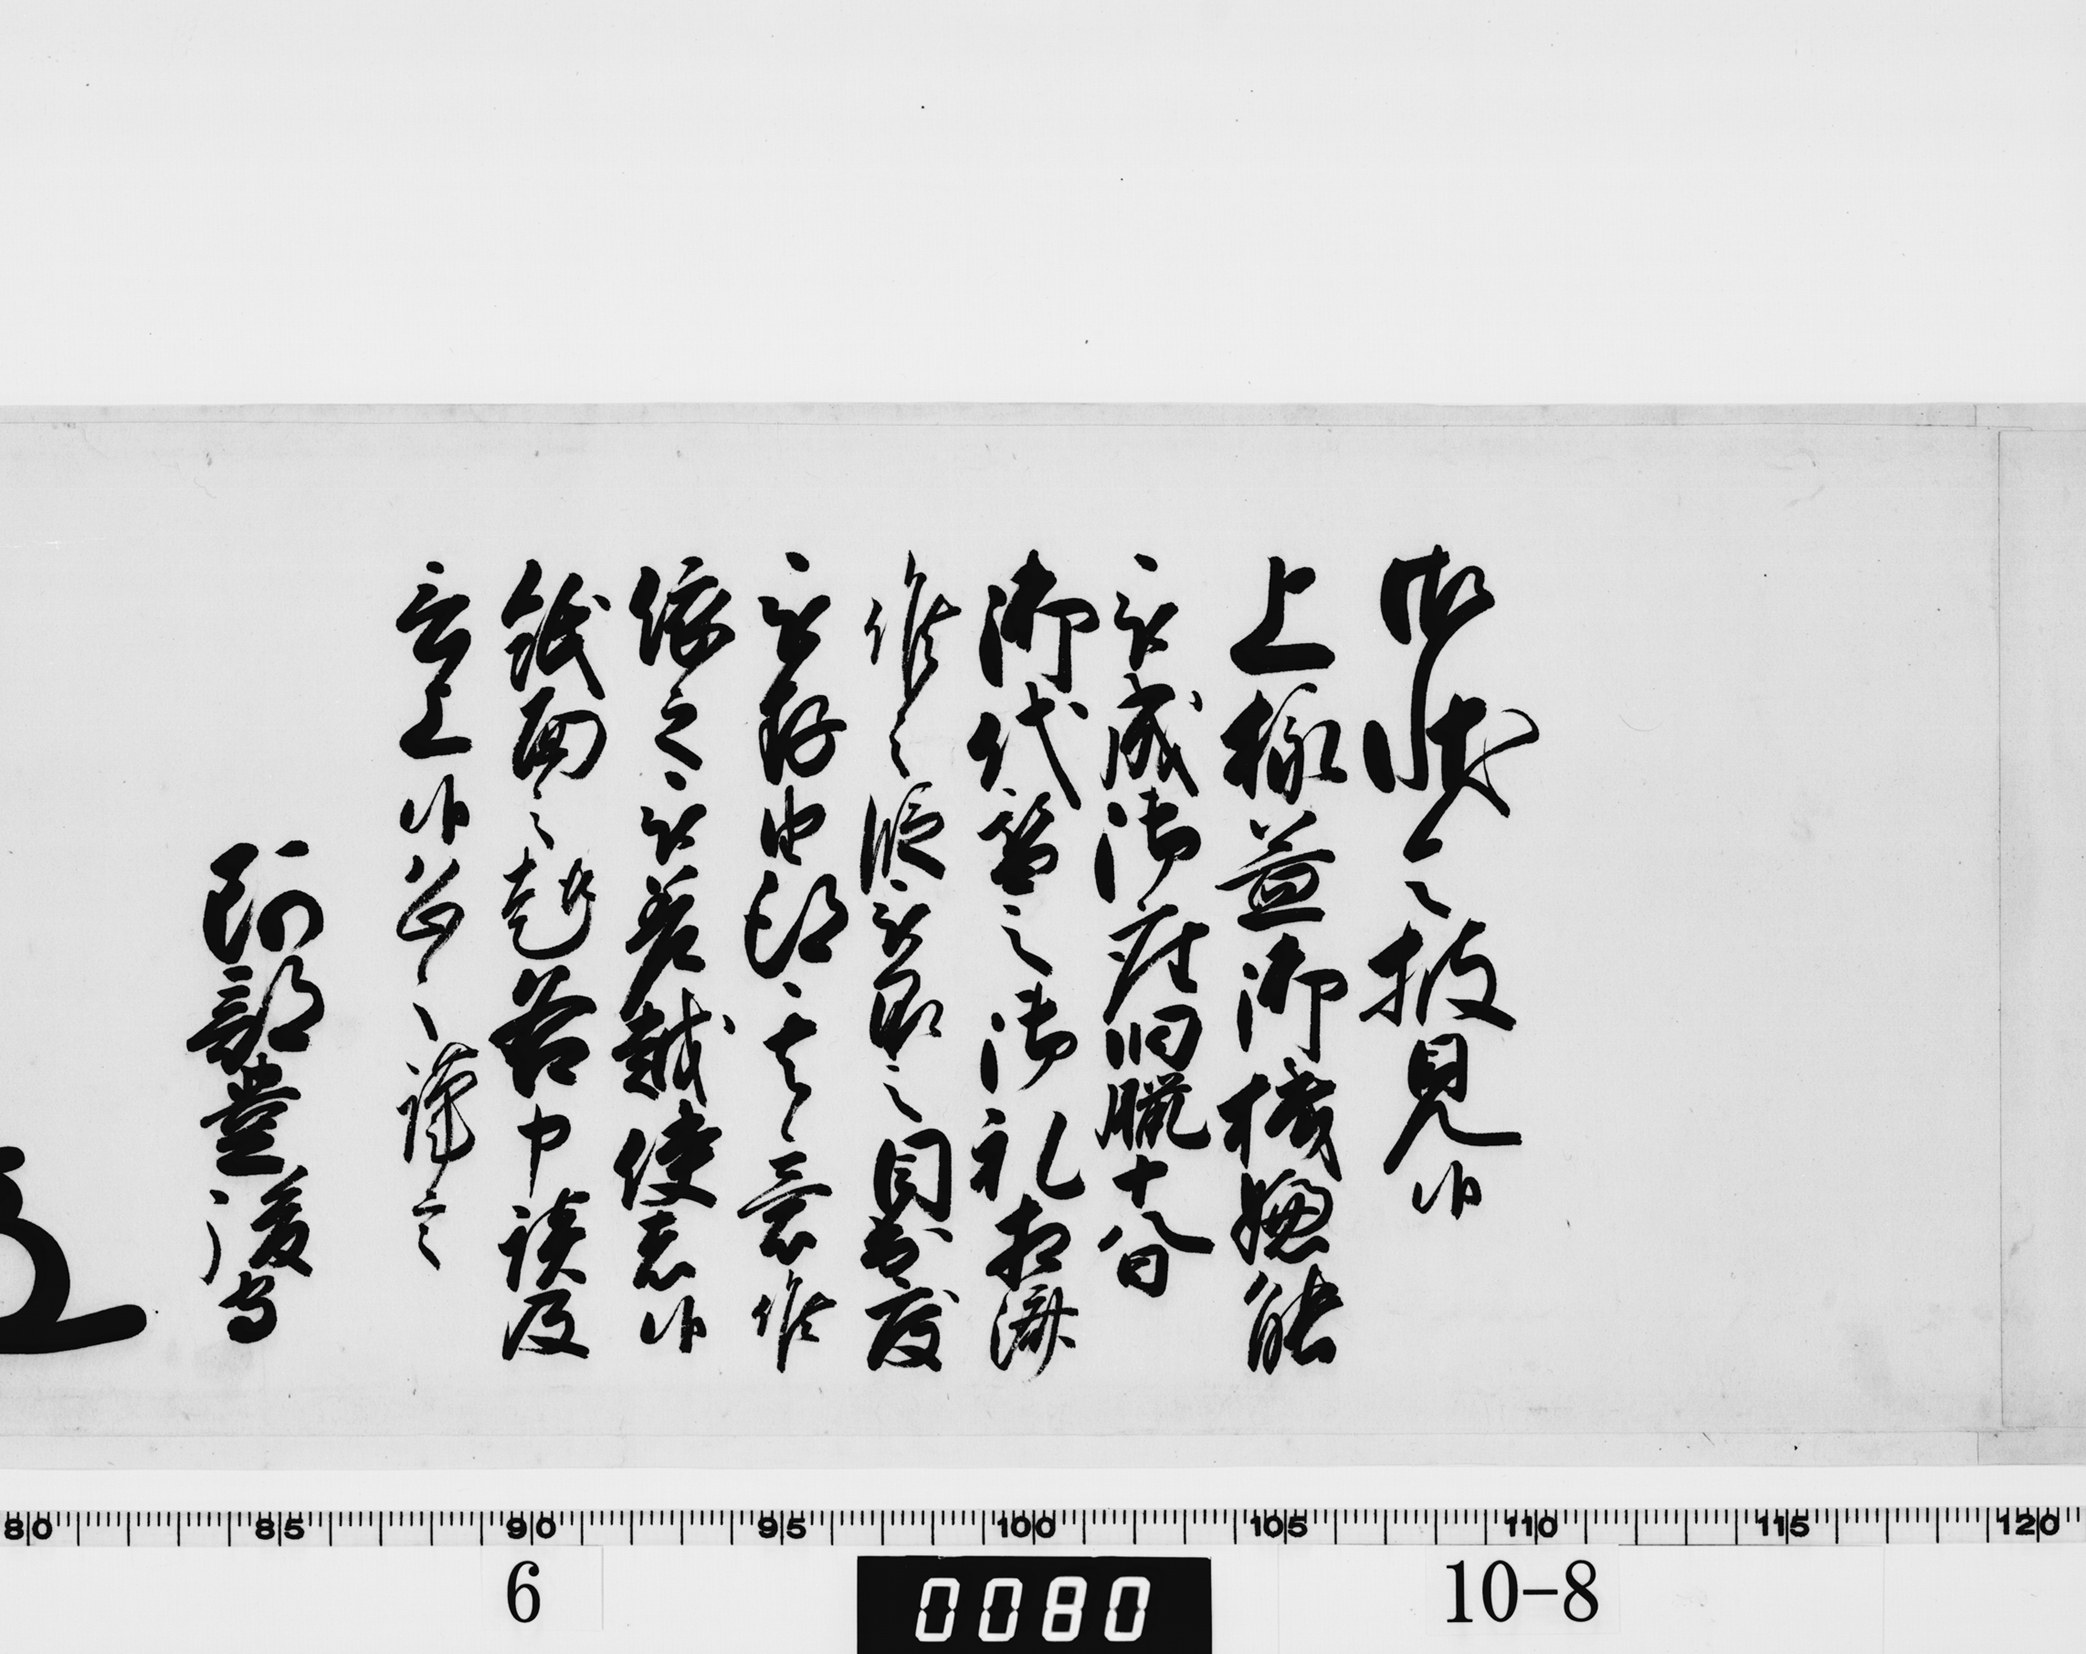 御状令披見候
上様益御機嫌能
被成御座旧臘十八日
御代替之御礼相済
候之段被承之目出度
被存由得其意候
依之被差越使者候
紙面之趣各申談及
言上候恐々謹言
阿部豊後守
80 85 90 95 100 105 110 115 120
6 0080 10-8